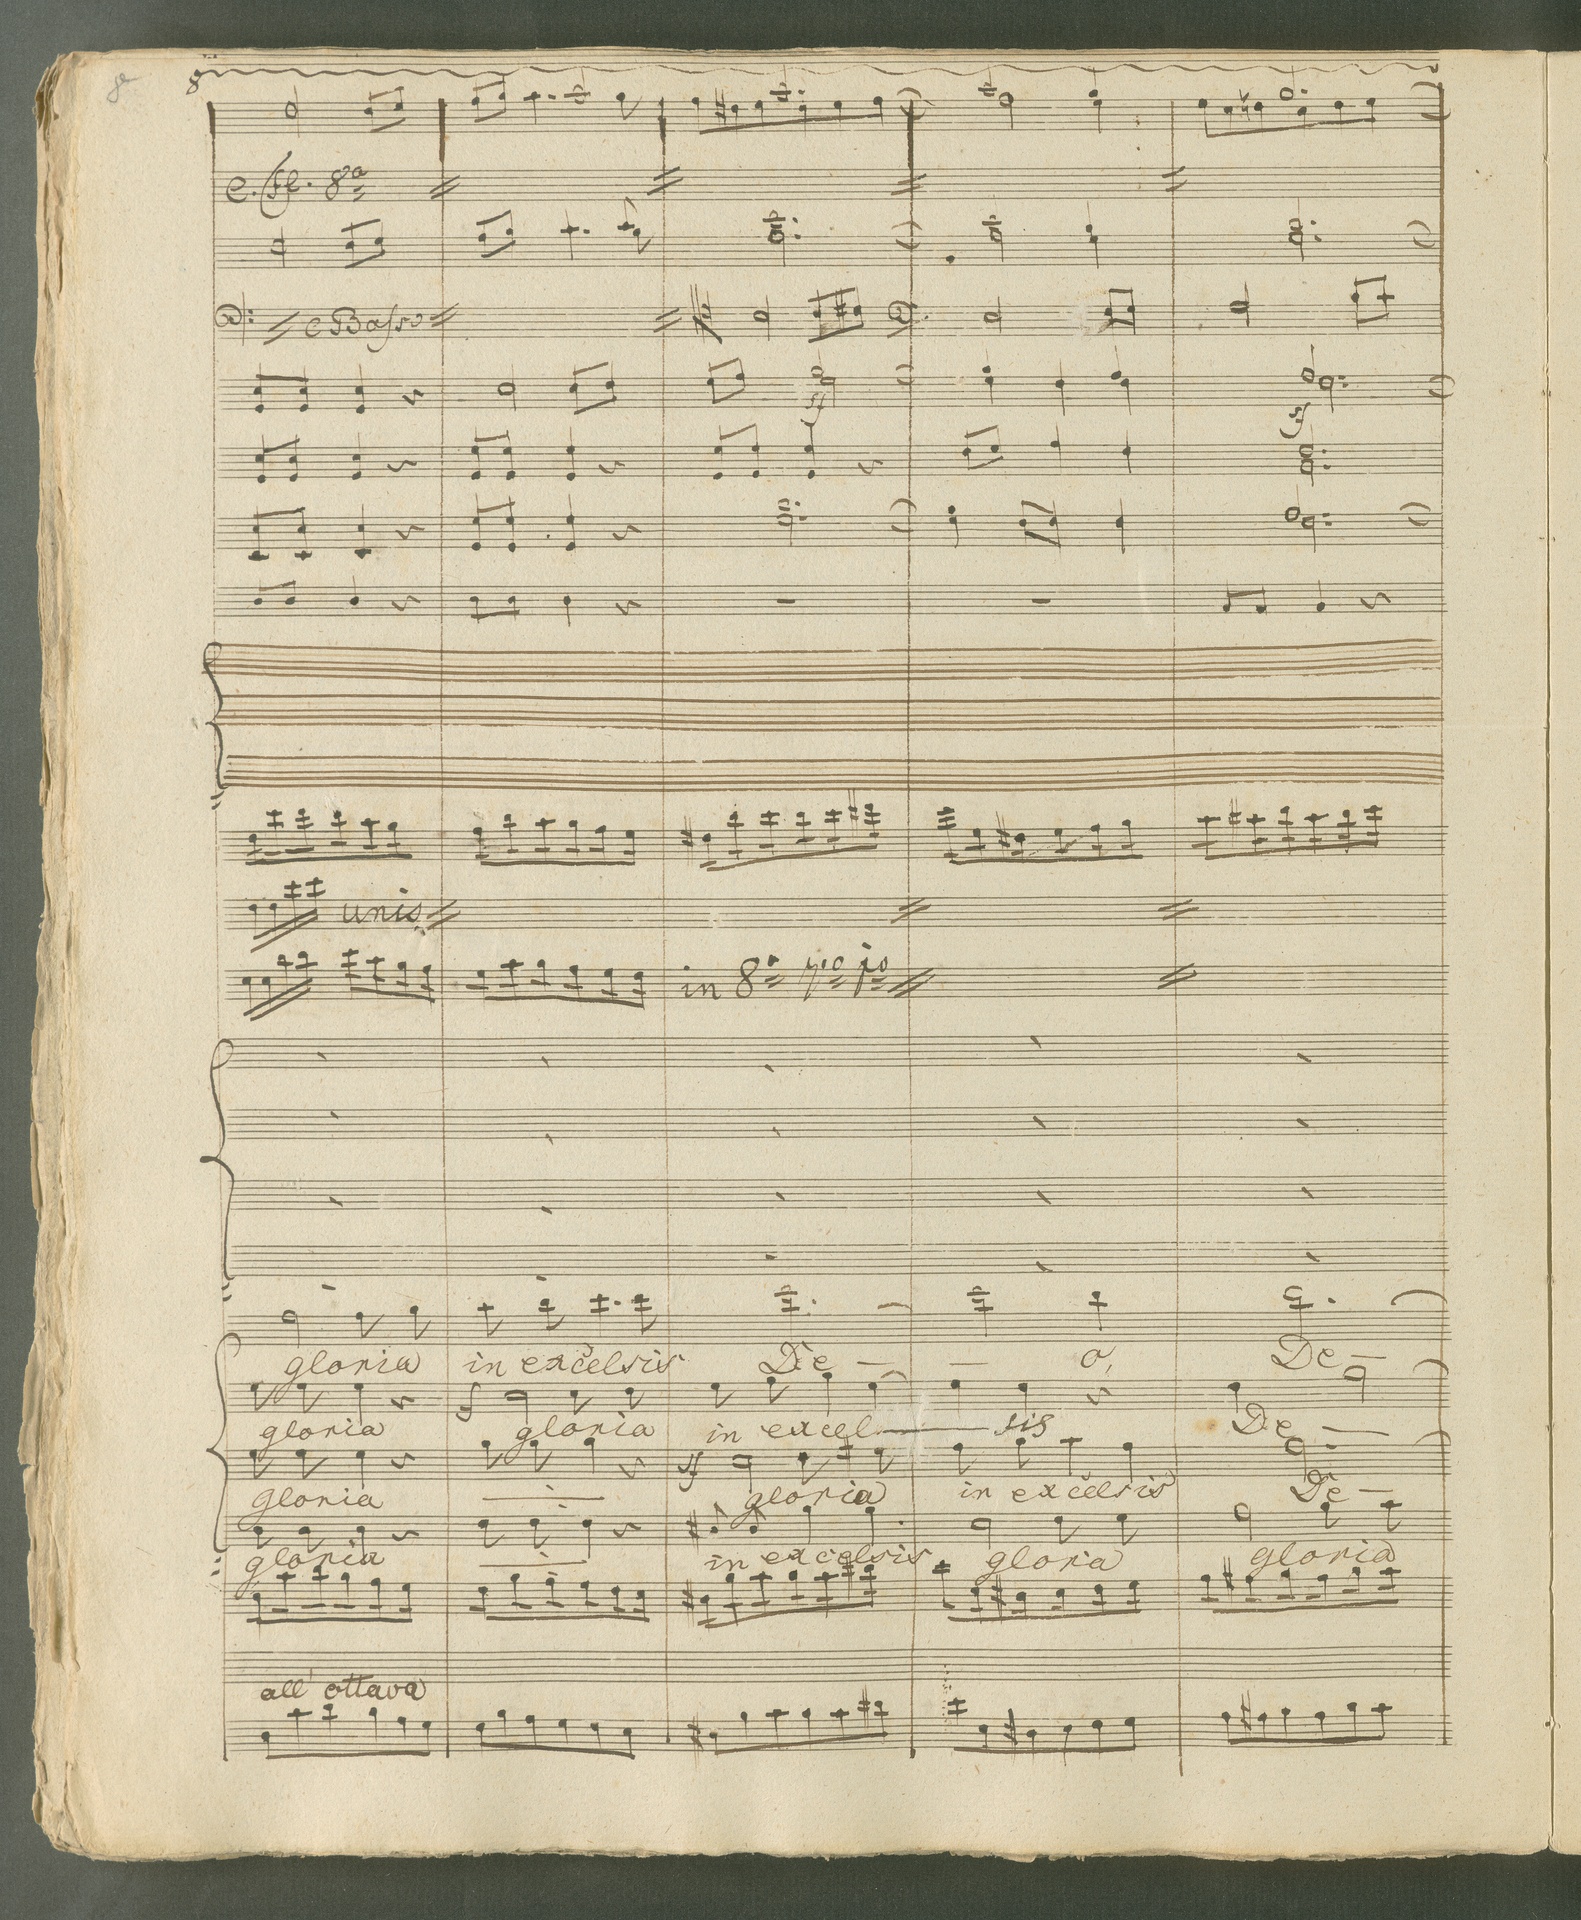 8
e. fl. 8a
e Basso
sf
sf
unis
in 8a
gloria in excelsis De — — o, De —
sf
gloria gloria in excel — sis De —
sf
gloria gloria in excelsis De —
gloria in excelsis gloria gloria
all' ottava